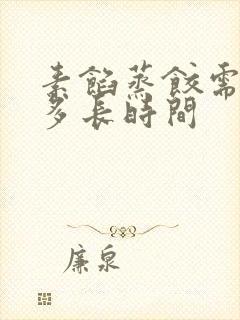 素餡蒸餃需
多長時間
廉泉